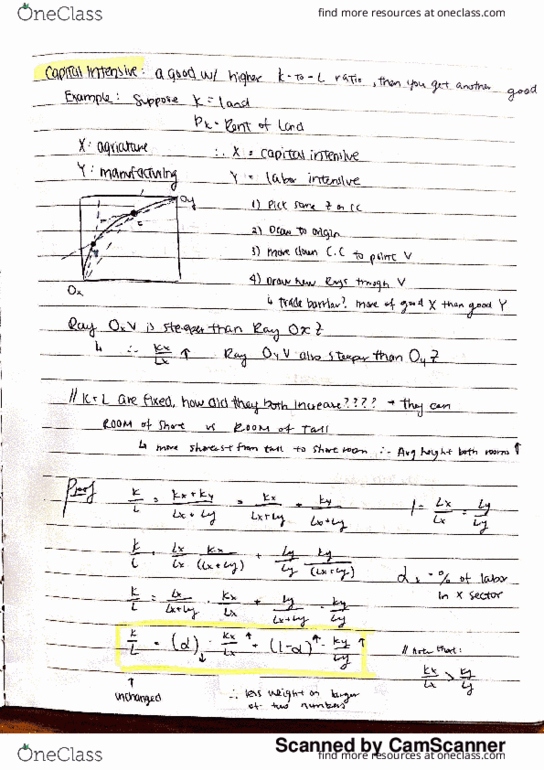 OneClass
find more resources at oneclass.com
Capital Intensive: a good w/ higher K-to-L ratio, then you get another good
Example: Suppose K = land
PK = Rent of Land
X: agriculture ∴ X = capital intensive
Y: manufacturing Y = labor intensive
Oy
Ox
1) Pick some Z on CC
2) Draw to origin
3) move down C.C to point V
4) Draw new Rays through V
↳ trade barrier? more of good X than good Y
Ray OxV is steeper than Ray OxZ
↳ ∴ Kx/Lx ↑ Ray OyV also steeper than OyZ
// K + L are fixed, how did they both increase???? → they can
ROOM of Short vs ROOM of Tall
↳ more shortest from tall to short room ∴ Avg height both rooms ↑
Proof K/L = Kx + Ky / Lx + Ly = Kx / Lx + Ly + Ky / Lx + Ly 1 = Lx/Lx = Ly/Ly
K/L = Lx/Lx Kx/(Lx + Ly) + Ly/Ly Ky/(Lx + Ly)
α = % of labor in X sector
K/L = Lx/Lx+Ly · Kx/Lx + Ly/Lx+Ly · Ky/Ly
K/L = (α)↓ · Kx/Lx ↑ + (1-α)↑ · Ky/Ly ↑
// Note that:
Kx/Lx > Ky/Ly
↑
unchanged
∴ less weight on larger
of two numbers
Scanned by CamScanner
OneClass
find more resources at oneclass.com